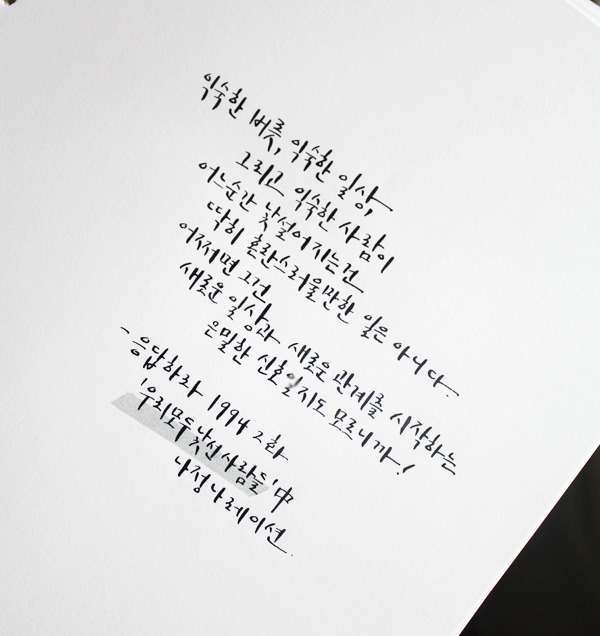 익숙한 버릇, 익숙한 일상,
그리고 익숙한 사람이
어느순간 낯설어지는건
딱히 혼란스러울만한 일은 아니다.
어쩌면 그건
새로운 일상과 새로운 관계를 시작하는
은밀한 신호일지도 모르니까!
- 응답하라 1994 2화
'우리모두 낯선 사람들' 中
나정 나레이션.